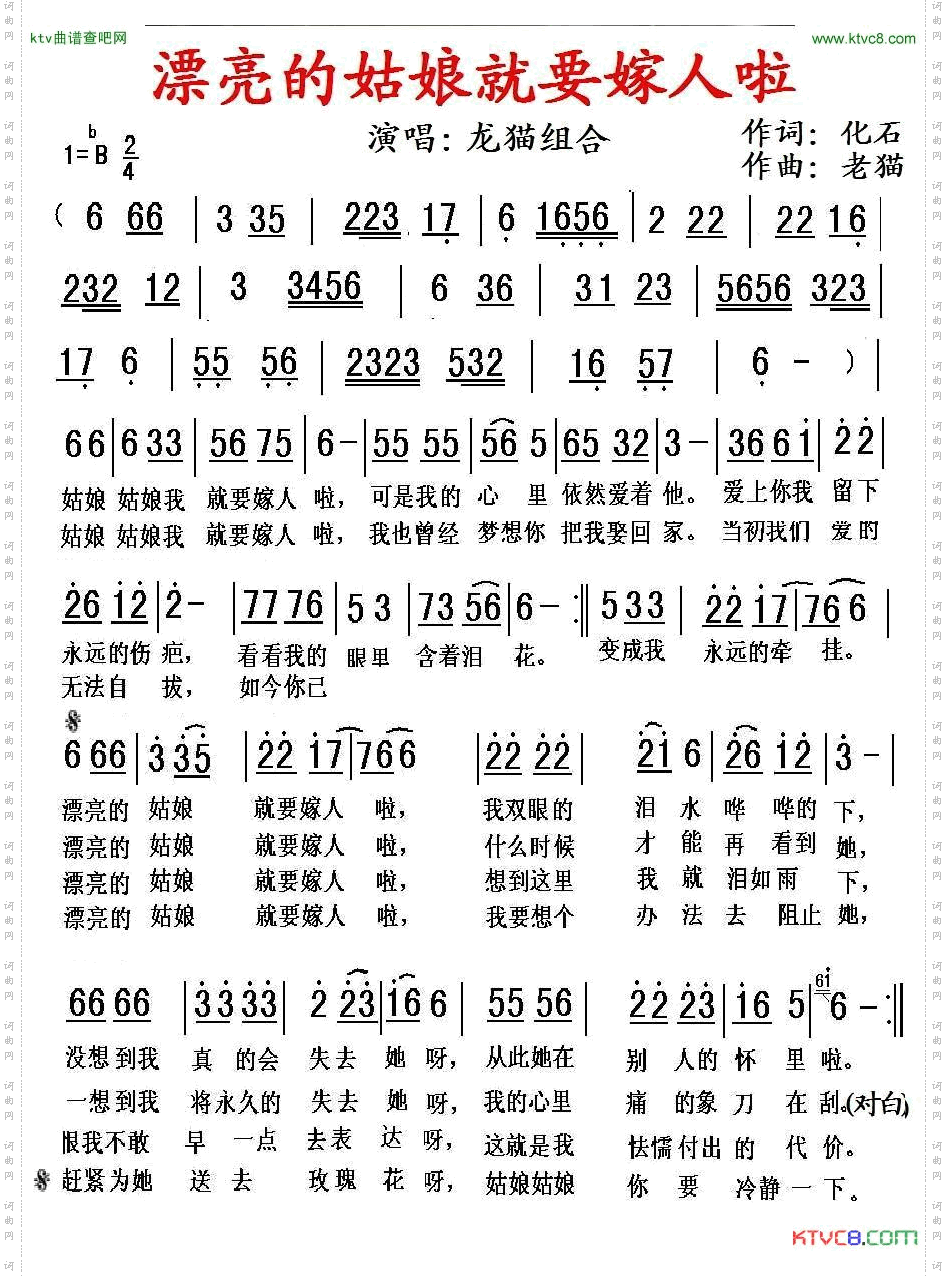 ktv曲谱查吧网 www.ktvc8.com
漂亮的姑娘就要嫁人啦
1=ᵇB 2/4 演唱：龙猫组合 作词：化石
作曲：老猫
( 6 66 | 3 35 | 223 17 | 6 1656 | 2 22 | 22 16 |
232 12 | 3 3456 | 6 36 | 31 23 | 5656 323 |
17 6 | 55 56 | 2323 532 | 16 57 | 6 - ) |
66 | 6 33 | 56 75 | 6 - | 55 55 | 56 5 | 65 32 | 3 - | 36 6i | 22
姑娘 姑娘我 就要嫁人 啦，可是我的 心 里 依然爱着 他。爱上你我 留下
姑娘 姑娘我 就要嫁人 啦，我也曾经 梦想你 把我娶回 家。当初我们 爱的
26 12 | 2 - | 77 76 | 5 3 | 73 56 | 6 - :|| 5 33 | 22 17 | 76 6
永远的伤 疤，看看我的 眼里 含着泪 花。变成我 永远的牵 挂。
无法自 拔，如今你已
6 66 | 3 35 | 22 17 | 76 6 | 22 22 | 21 6 | 26 12 | 3 - |
漂亮的 姑娘 就要嫁人 啦，我双眼的 泪 水 哗 哗的 下，
漂亮的 姑娘 就要嫁人 啦，什么时候 才 能 再 看到 她，
漂亮的 姑娘 就要嫁人 啦，想到这里 我 就 泪如雨 下，
漂亮的 姑娘 就要嫁人 啦，我要想个 办 法 去 阻止 她，
66 66 | 33 33 | 2 23 | 16 6 | 55 56 | 22 23 | 16 5 | 6i 6 - :||
没想到我 真 的会 失去 她 呀，从此她在 别 人的 怀 里 啦。
一想到我 将永久的 失去 她 呀，我的心里 痛 的象 刀 在 刮。(对白)
恨我不敢 早 一点 去表 达 呀，这就是我 怯懦付出 的 代 价。
赶紧为她 送 去 玫瑰 花 呀，姑娘姑娘 你 要 冷静 一 下。
KTVC8.COM